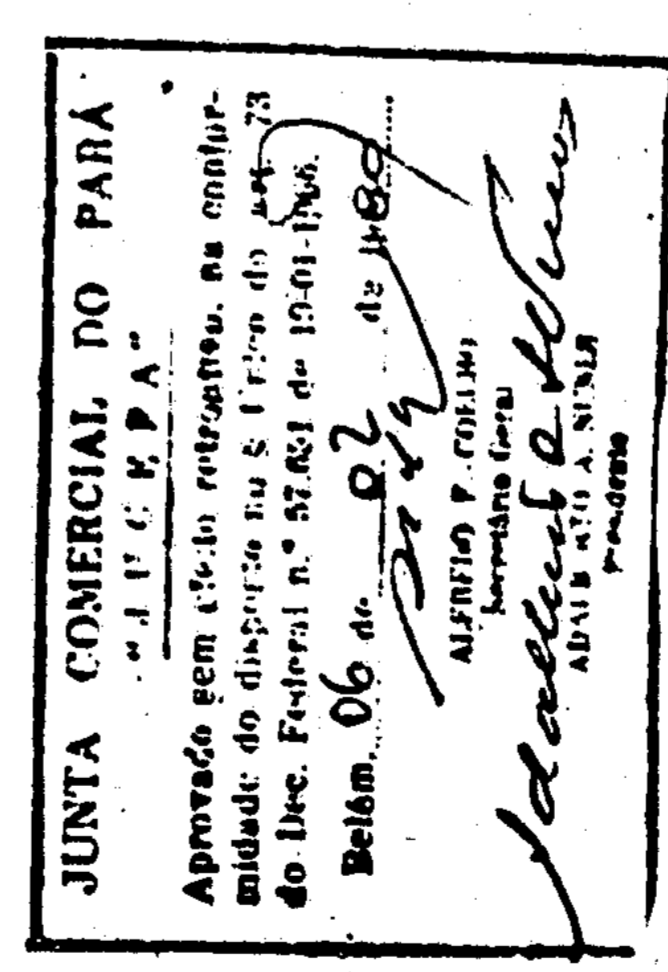 JUNTA COMERCIAL DO PARÁ
"JUCEPA"
Aprovado sem efeito retroativo, na confor-
midade do disposto no § Único do art. 73
do Dec. Federal n.º 57.651 de 19-01-1966.
Belém, 06 de 02 de 1980
ALFREDO F. COELHO
Secretário Geral
A. NUNES
Presidente